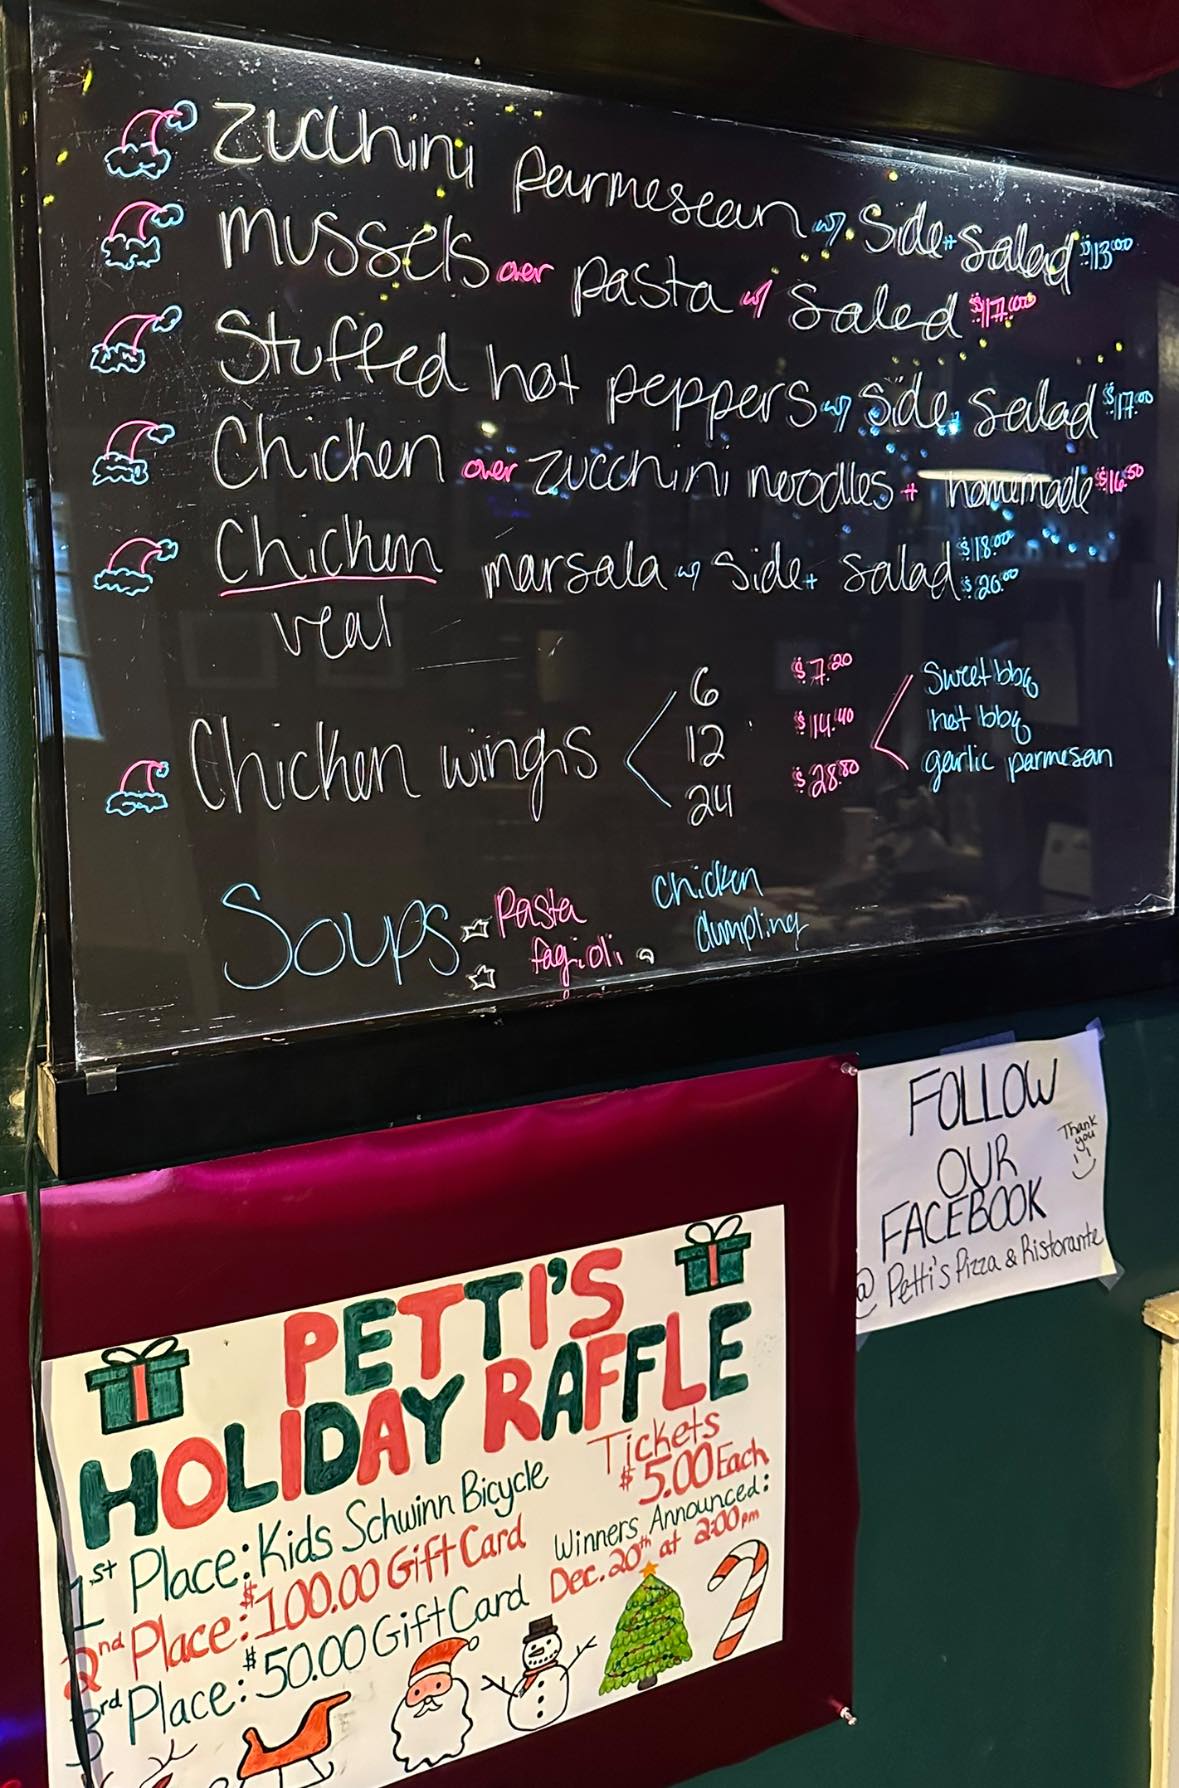 Zucchini Parmesean w/ Side + Salad $13.00
Mussels over pasta w/ Salad $17.00
Stuffed hot peppers w/ side + Salad $17.00
Chicken over zucchini noodles + homemade $16.50
Chicken marsala w/ side + salad $18.00
veal $26.00
Chicken wings
6 $7.20 Sweet bbq
12 $14.40 hot bbq
24 $28.80 garlic parmesan
Soups
Pasta
fagioli
chicken
dumpling
FOLLOW
OUR
FACEBOOK
@ Petti's Pizza & Ristorante
Thank
you
PETTI'S
HOLIDAY RAFFLE
1st Place: Kids Schwinn Bicycle
2nd Place: $100.00 Gift Card
3rd Place: $50.00 Gift Card
Tickets
$5.00 Each
Winners Announced:
Dec. 20th at 2:00pm